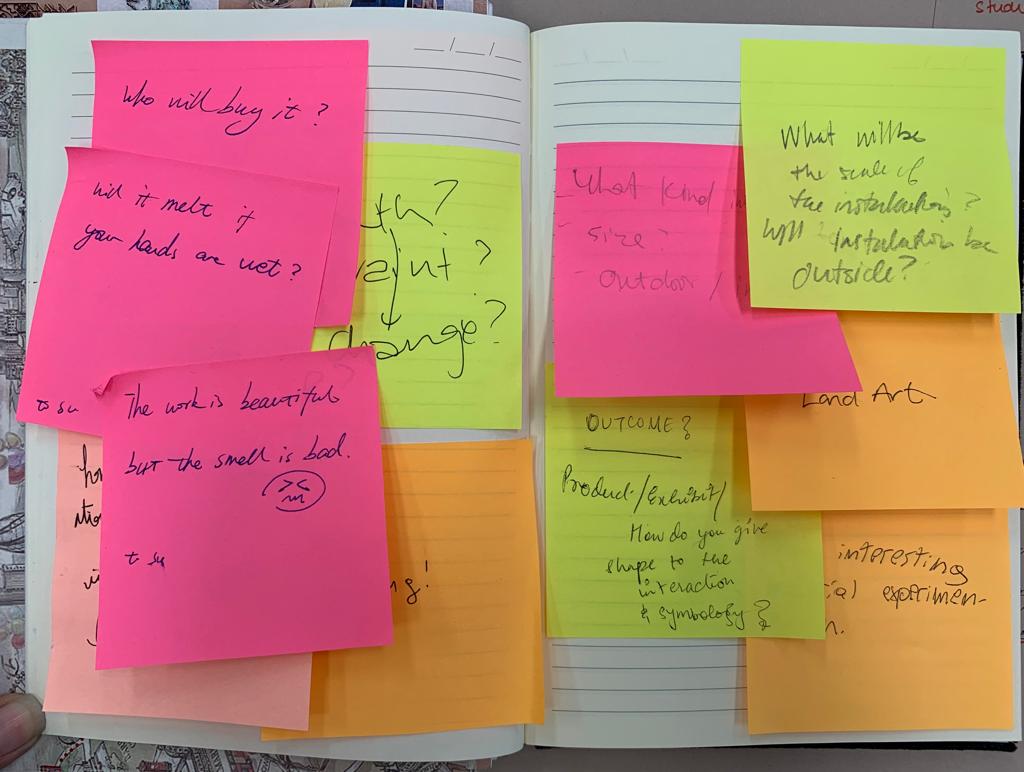 who will buy it?
will it melt if
your hands are wet?
to su
The work is beautiful
but the smell is bad.
to su
change?
g!
What Kind
size?
outdoor /
What will be
the scale of
the installation?
Will installation be
outside?
Land Art
OUTCOME?
Product/Exhibit/
How do you give
shape to the
interaction
& symbology?
interesting
ial experimen-
n.
Stud